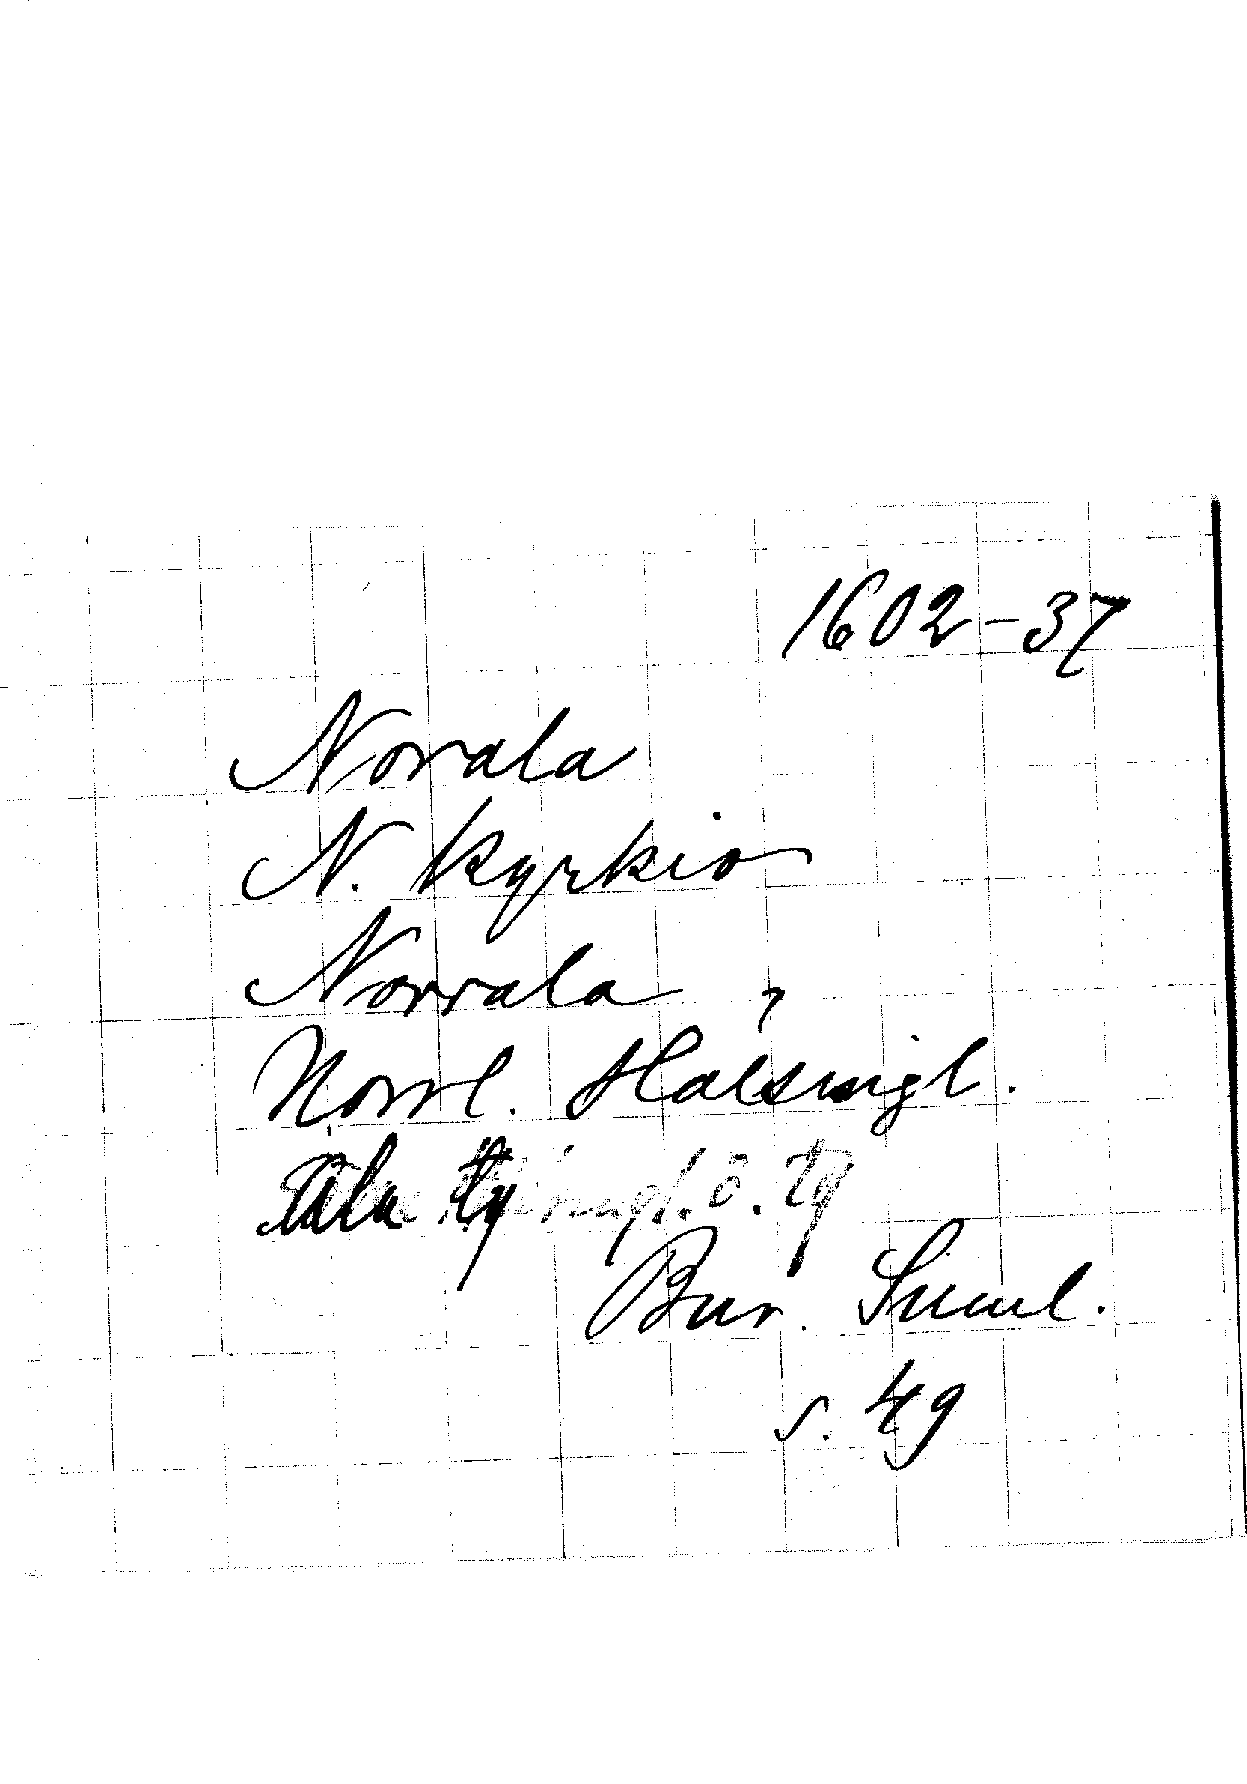 1602-37
Norrala
N. Kyrkio
Norrala
Norrl. Hälsingl.
Ala tg
Bur. Suml.
s. 49